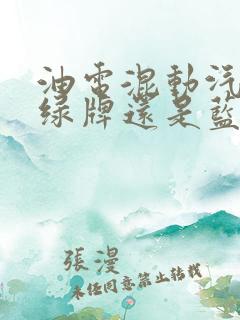 油電混動汽
綠牌還是藍
張漫
未經同意禁止轉載